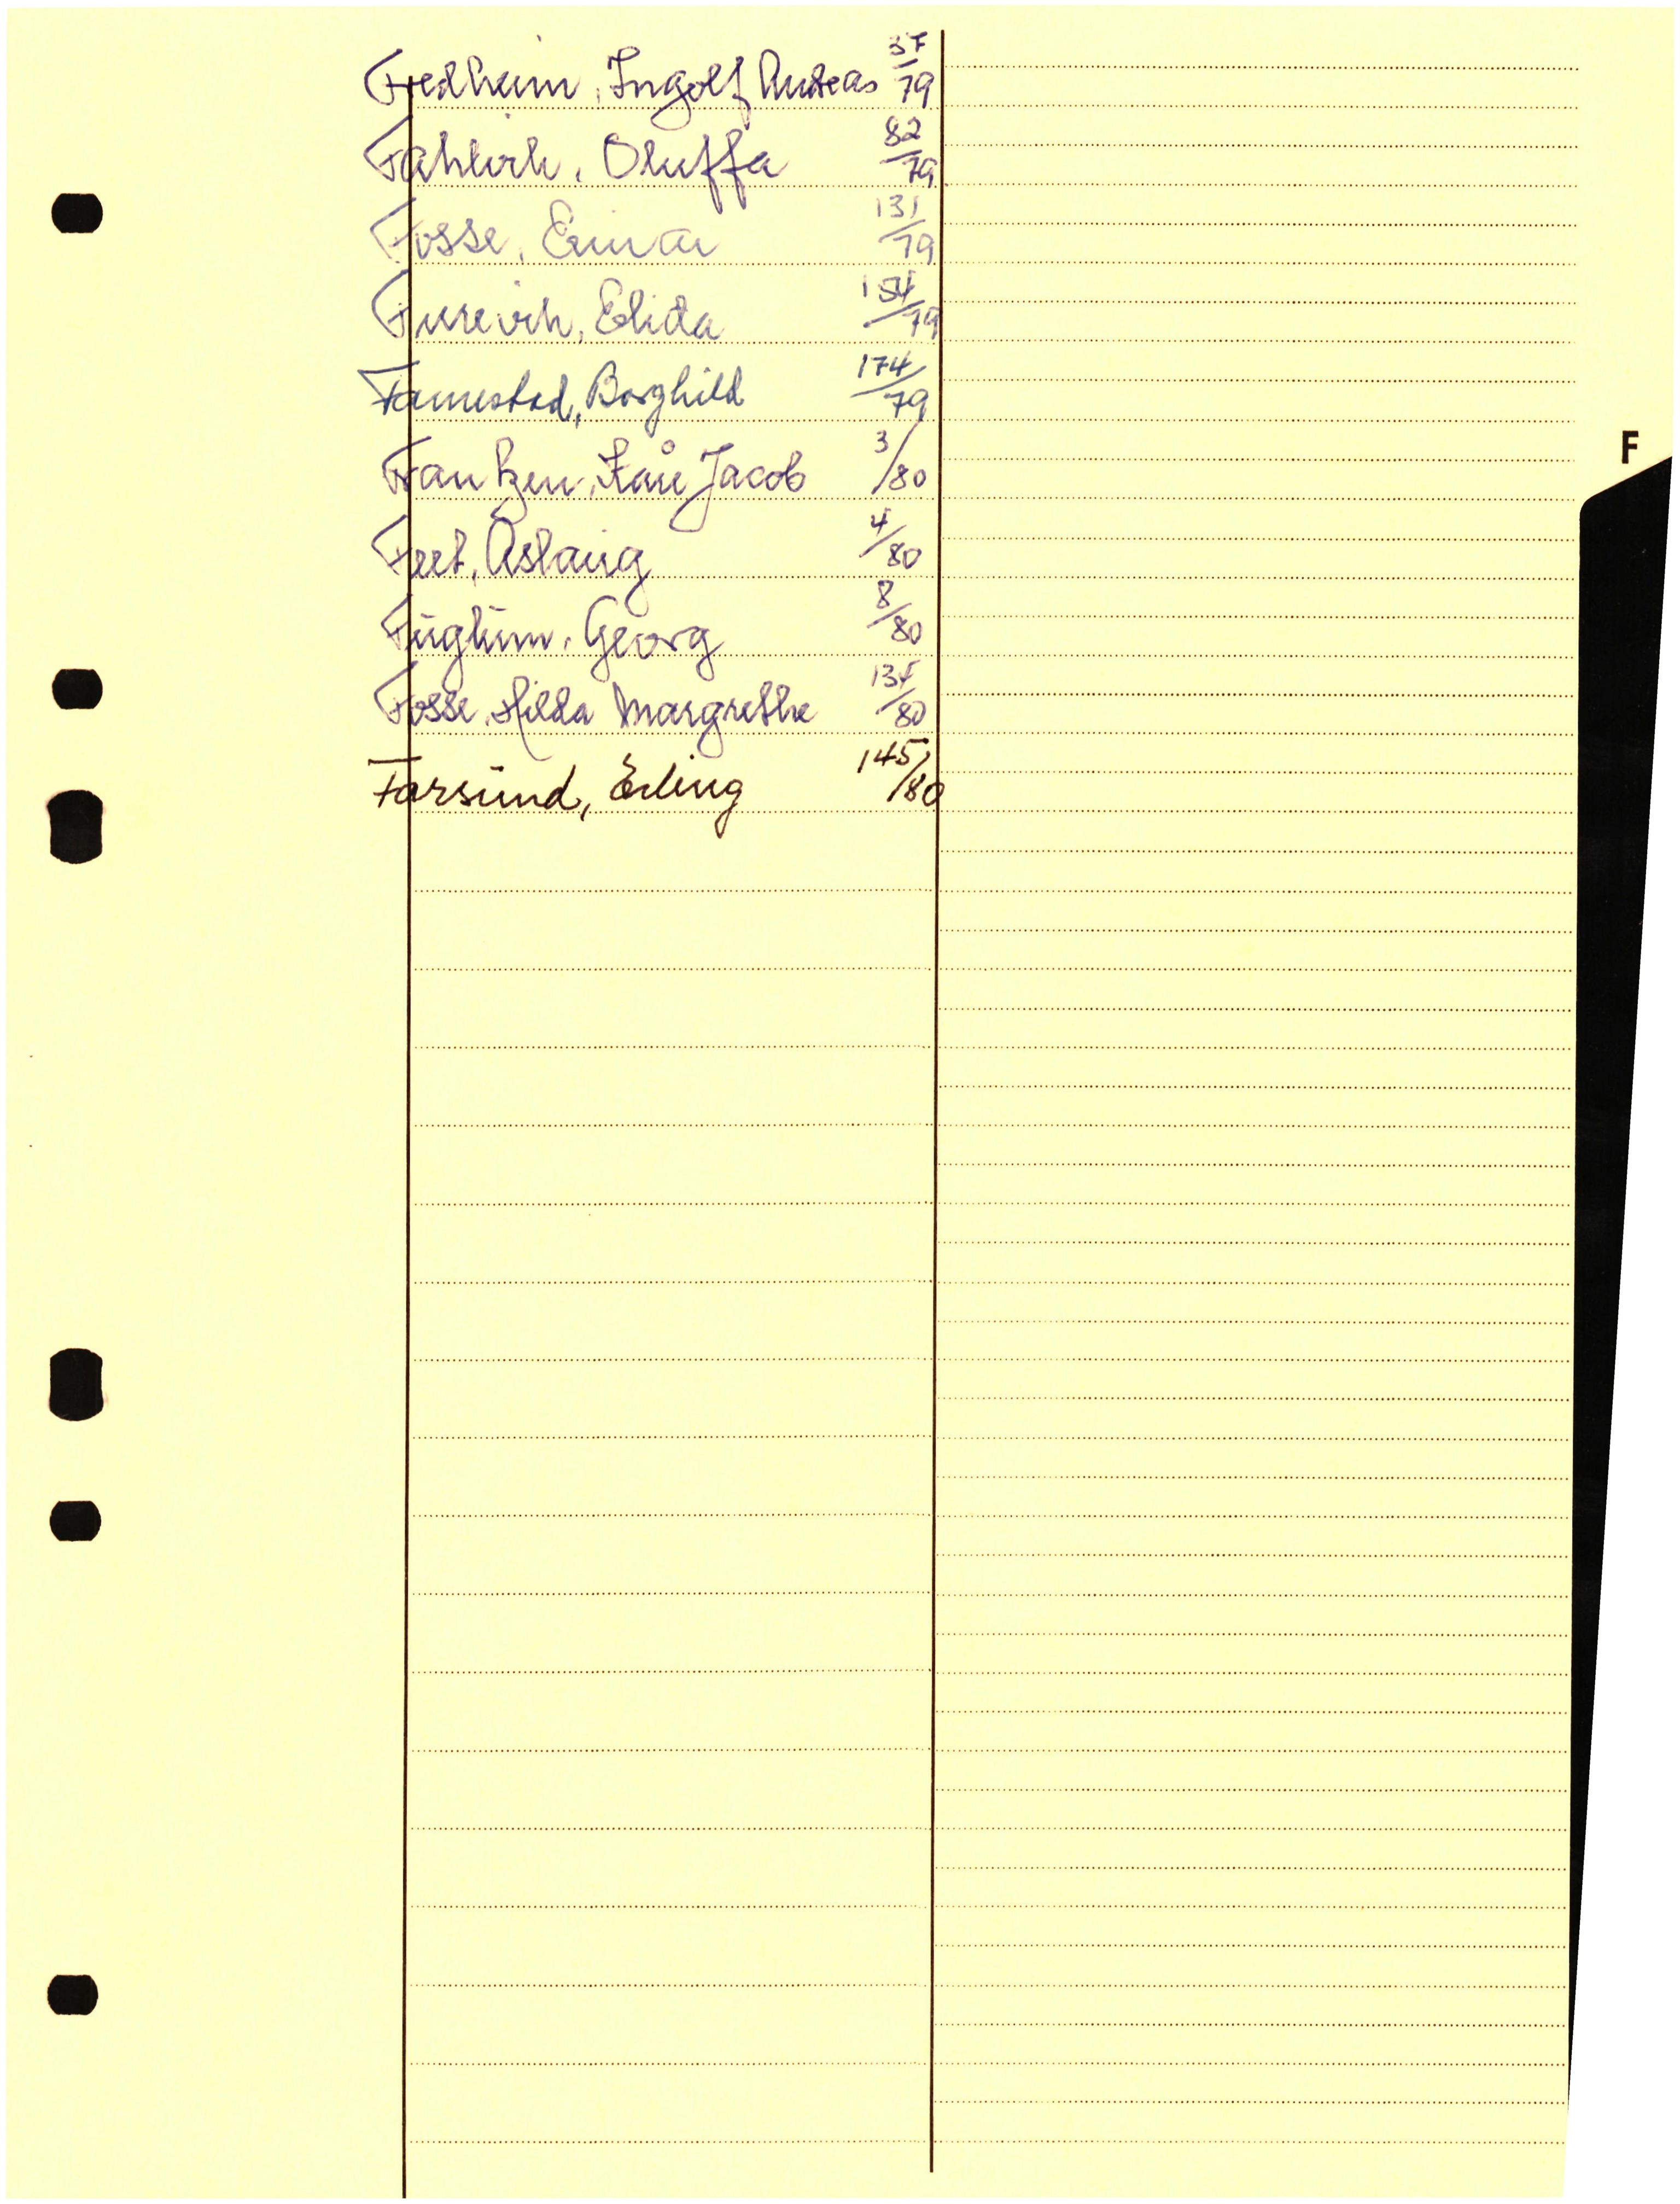 Fredheim, Ingolf Andreas 37/79
Fahlvik, Oluffa 82/79
Fosse, Einar 131/79
Furevik, Elida 154/79
Famestad, Borghild 174/79
Frantzen, Kåre Jacob 3/80
Feet, Aslaug 4/80
F
Fuglum, Georg 8/80
Fosse, Hilda Margrethe /80
Farsund, Erling 145/80